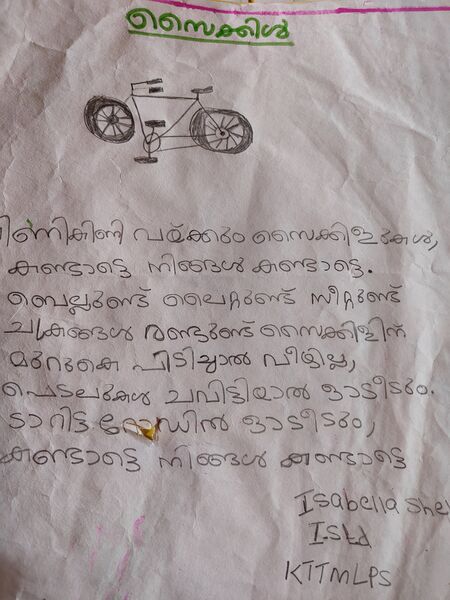 സൈക്കിൾ
ണികിണി വയ്ക്കും സൈക്കിളുകൾ,
കണ്ടോട്ടെ നിങ്ങൾ കണ്ടോട്ടെ.
ബെല്ലുണ്ട് ലൈറ്റുണ്ട് സീറ്റുണ്ട്
ചക്രങ്ങൾ രണ്ടുണ്ട് സൈക്കിളിന്
മുറുകെ പിടിച്ചാൽ വീഴില്ല,
പെടലുകൾ ചവിട്ടിയാൽ ഓടീടും.
ടാറിട്ട റോഡിൽ ഓടീടും,
കണ്ടോട്ടെ നിങ്ങൾ കണ്ടോട്ടെ
Isabella She
I.Std
KTTMLPS